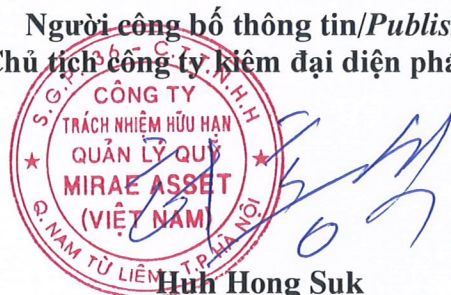 Người công bố thông tin/Publis
Chủ tịch công ty kiêm đại diện phá
S.G.P: 36 - C.T.T.N.H.H
CÔNG TY
TRÁCH NHIỆM HỮU HẠN
QUẢN LÝ QUỸ
MIRAE ASSET
(VIỆT NAM)
Q. NAM TỪ LIÊM, T.P HÀ NỘI
Huh Hong Suk